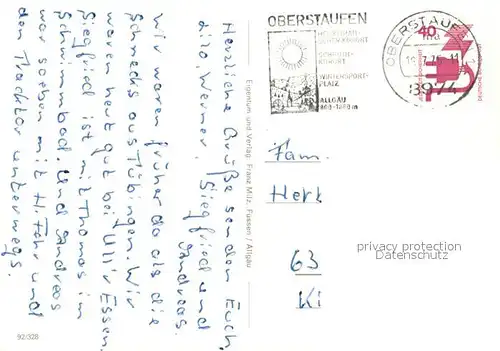 Herzliche Grüße senden Euch
Lilo Werner, Siegfried und
Andreas.
Wir waren früher da als die
Schnecks aus Tübingen. Wir
waren heut gut bei Ulli Essen.
Siegfried ist mit Thomas im
Schwimmbad. Und Andreas
war soeben mit H. Fahr und
den Tochter unterwegs.
92/328
Eigentum und Verlag Franz Milz, Füssen / Allgäu
OBERSTAUFEN
HEILKLIMAT.
SCHROTHKURORT
WINTERSPORT-
PLATZ
ALLGÄU
OBERSTAUFEN
8974
40
Fam.
Herb
63
Ki
privacy protection
Datenschutz